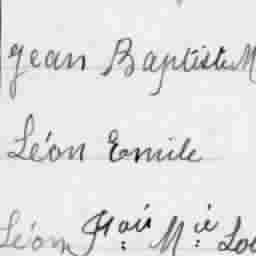 Jean Baptiste M
Léon Emile
Léon Mie Lou